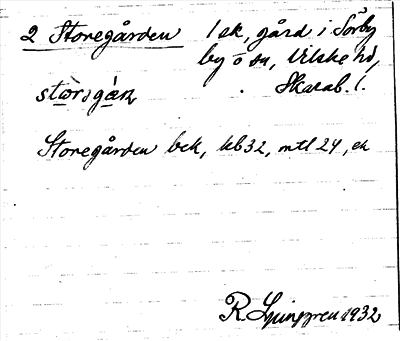 2 Storegården 1 sk, gård i Sörby
by o sn, Vilske hd,
Skarab. l.
stœ̄rə̣gáṇ
Storegården bek, kb 32, mtl 24, ek
R. Ljunggren 1932